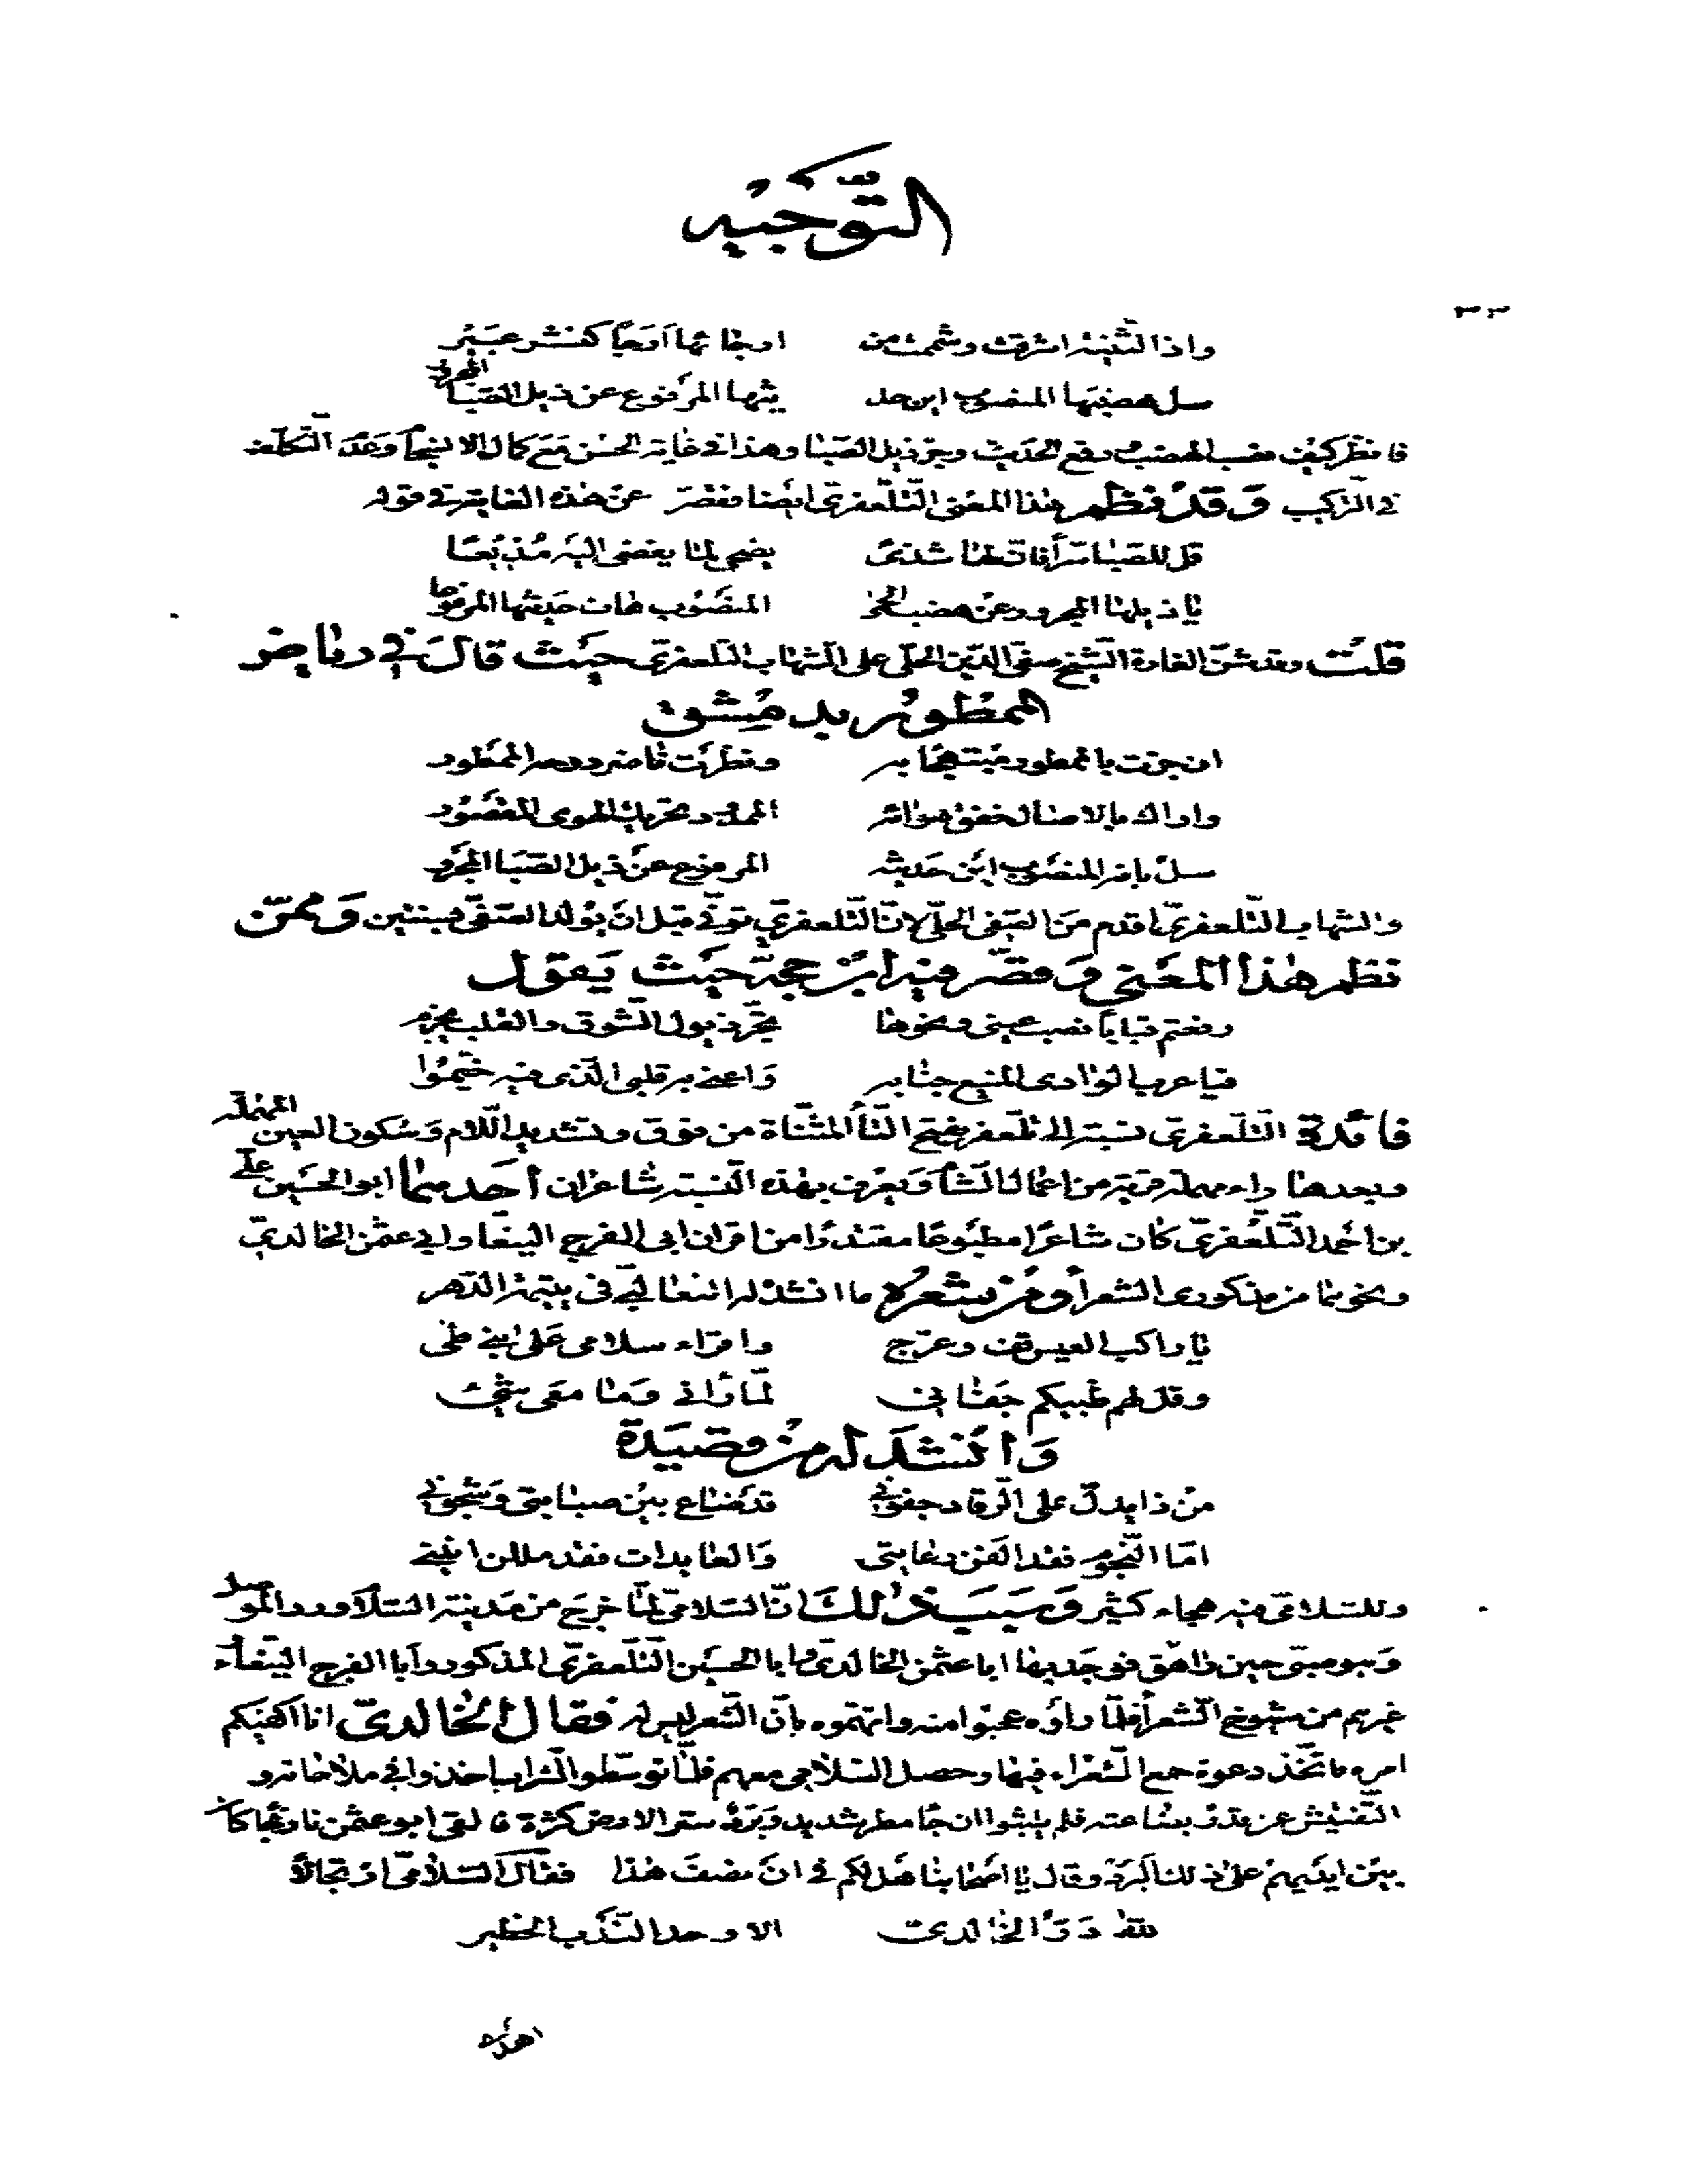 التوجيه
٣٣
واذا الثنية اشرقت وشممت من ارجائها ارجا كنشر عبير
سل هضبها المنصوب اين حديثها المرفوع عن ذيل الصبا المجرور
فانظر كيف نصب الهضب ورفع الحديث وجر ذيل الصبا وهذا في غاية الحسن مع كمال الانسجام وعدم التكلف
في التركيب وقد نظم هذا المعنى التلعفري ايضا فقصر عن هذه الغاية في قوله
قل للصبا سرا فان لها شذى يضحي لما يفضى اليه مذيعا
يا ذيلها المجرور عن هضب الحمى المنصوب هات حديثها المرفوعا
قلت وقد شن الغارة الشيخ صفي الدين الحلي على الشهاب التلعفري حيث قال في رياض
الممطور بدمشق
ان جزت بالممطور مبتهجا به ونظرت ناضر دوحه الممطور
واراك بالاصال خفق هوائه الممدود تحريك الهوى المقصور
سل بانه المنصوب اين حديثه المرفوع عن ذيل الصبا المجرور
والشهاب التلعفري اقدم من الصفي الحلي لان التلعفري توفي قبل ان يولد الصفي بسنتين وممن
نظم هذا المعنى وقصر فيه ابن حجة حيث يقول
رفعتم قبابا نصب عيني ونحوها تجر ذيول الشوق والقلب يجزم
فيا عرب الوادي المنيع جنابه واعني به قلبي الذي فيه خيموا
فائدة التلعفري نسبة الى تلعفر بفتح التاء المثناة من فوق وتشديد اللام وسكون العين المهملة
وبعدها راء مهملة قرية من اعمال الشام ويعرف بهذه النسبة شاعران احدهما ابو الحسين علي
بن احمد التلعفري كان شاعرا مطبوعا مقتدرا من اقران ابي الفرج الببغا وابي عثمن الخالدي
ونحوهما من مذكوري الشعراء ومن شعره ما انشد له الثعالبي في يتيمة الدهر
يا راكب العيس قف وعرج واقراء سلامي على ابني طي
وقل لهم ظبيكم جفاني لما راني وما معي شيء
وانشد له من قصيدة
من ذا يدل على الرقاد جفوني قد ضاع بين صبابتي وشجوني
اما النجوم فقد الفن رعايتي والعايدات فقد مللن انيني
وللسلامي فيه هجاء كثير وسبب ذلك ان السلامي لما خرج من مدينة السلام ورد الموصل
وهو صبي حين راهق فوجد بها ابا عثمن الخالدي وابا الحسين التلعفري المذكور وابا الفرج الببغاء
غيرهم من شيوخ الشعراء فلما راوه عجبوا منه واتهموه بان الشعر ليس له فقال الخالدي انا اكفيكم
امره فاتخذ دعوة جمع الشعراء فيها وحصل السلامي معهم فلما توسطوا الشراب اخذوا في ملاحاته و
التفتيش عن قدر بضاعته فلم يلبثوا ان جا مطر شديد وبرد ستر الارض كثرة فالقى ابو عثمن نارنجا كان
بين ايديهم على ذلك البرد وقال يا اصحابنا هل لكم في ان نصف هذا فقال السلامي ارتجالا
لله در الخالدي الاوحد الندب الخطير
اهدى